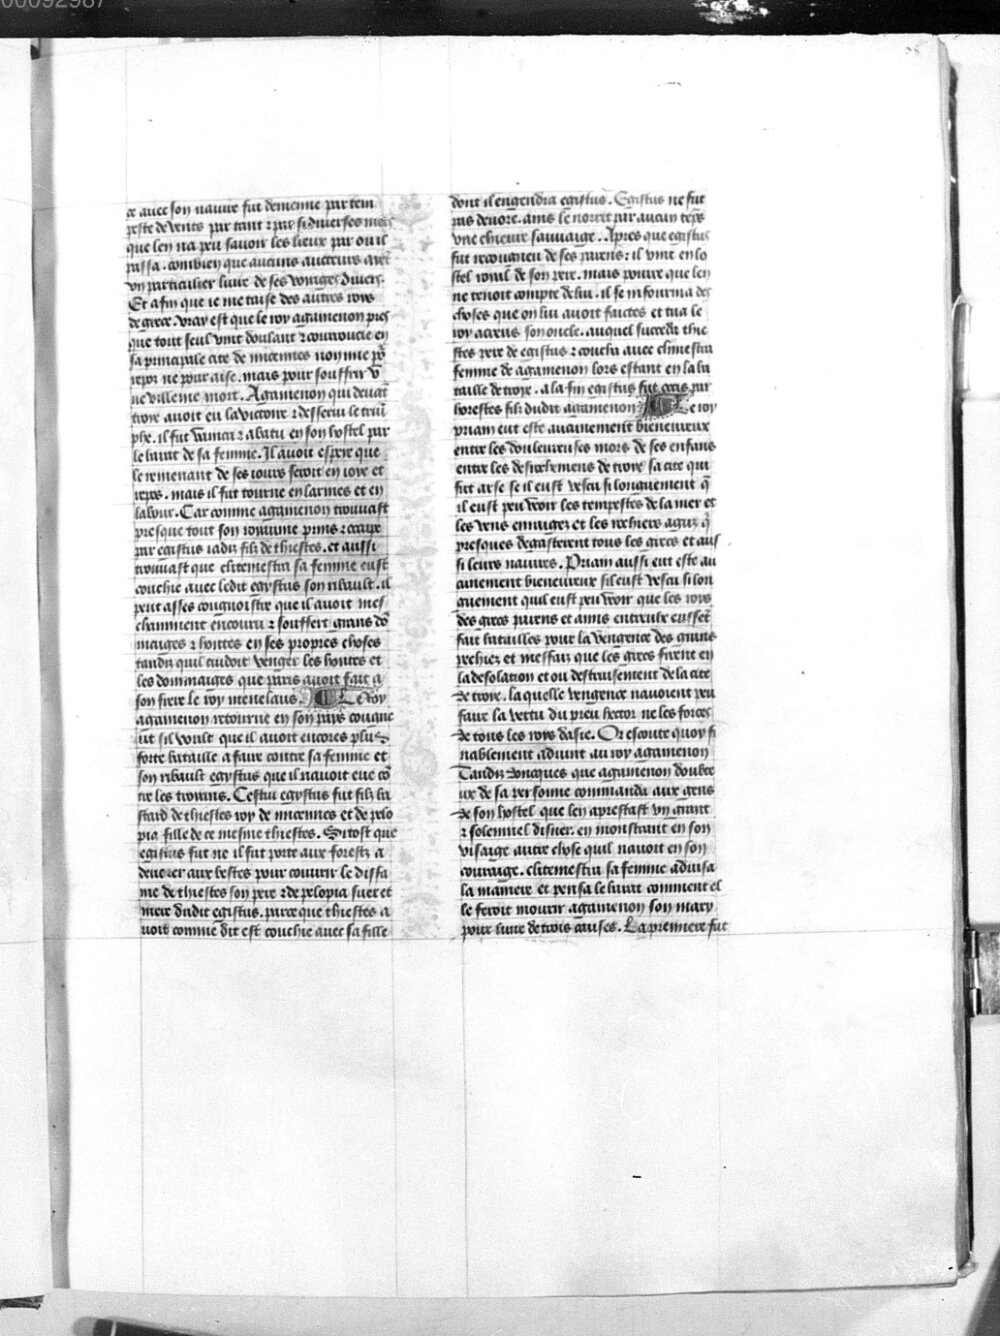 00092987
ce avec son navire fut demenne par tem
peste de vents par tant ⁊ par si diverses mers
que len na peu savoir les lieux par ou il
passa . combien que aucuns aucteurs aiẽt
vn particulier livre de ses voiages divers .
Et afin que ie me taise des autres roys
de grece . vray est que le roy agamenon pres
que tout seul vint doulant ⁊ courroucie en
sa principale cite de micennes non mie põ
repoz ne pour aise . mais pour souffrir v̄
ne villeine mort . Agamenon qui devãt
troye avoit eu la victoire ⁊ desservi le triũ
phe . il fut vaincu ⁊ abatu en son hostel par
le barat de sa femme . Il avoit espere que
le remenant de ses iours seroit en ioye et
repos . mais il fut tourne en larmes et en
labour . Car comme agamenon trouvast
presque tout son royaume prins ⁊ occupe
par egistus iadiz filz de thiestes . et aussi
trouvast que clitemestra sa femme eust
couchie avec ledit egystus son ribault . il
peut asses congnoistre que il avoit mes
chamment encouru ⁊ souffert grans dõ
maiges ⁊ hontes en ses propres choses
tandiz quil cuidoit venger les hontes et
les dommaiges que paris avoit fait a
son frere le roy menelaus . Le roy
agamenon retourne en son pays congne
ut sil voult que il avoit encores plus
forte bataille a faire contre sa femme et
son ribault egystus que il navoit eue cõ
tre les troyans . Cestui egystus fut filz ba
stard de thiestes roy de micennes et de pelo
pia fille de ce mesme thiestes . Sitost que
egistus fut ne il fut porte aux forestz a
devorer aux bestes pour couvrir le diffa
me de thiestes son pere ⁊ de pelopia suer et
mere dudit egistus . parce que thiestes a
voit comme dit est couchie avec sa fille
dont il engendra egistus . Egistus ne fut
pas devore . ains le norrit par aucun tẽps
vne chievre sauvaige . Apres que egistus
fut recongneu de ses parens : il vint en lo
stel royal de son pere . mais pource que len
ne tenoit compte de lui . il se informa des
choses que on lui avoit faictes et tua le
roy acreus son oncle . auquel succeda thie
stes pere de egistus ⁊ coucha avec climestra
femme de agamenon lors estant en la ba
taille de troye . a la fin egistus fut occis par
horestes filz dudit agamenon Le roy
priam eut este aucunement bieneureux
entre les douloureuses mors de ses enfans
entre les destruemens de troye sa cite qui
fut arse se il eust vescu si longuement q̃
il eust peu veoir les tempestes de la mer et
les vens enraigez et les rochiers aguz q̃
presques degasterent tous les grecs et aus
si leurs navires . Priam aussi eut este au
cunement bieneureux sil eust vescu si lon
guement quil eust peu veoir que les roys
des grecs parens et amis entreulx eussẽt
fait batailles pour la vengence des grans
pechiez et meffaiz que les grecs firent en
la desolation et ou destruisement de la cite
de troye . laquelle vengence navoient peu
faire la vertu du preu hector ne les forces
de tous les roys dasie . Or escoute quoy fi
nablement advint au roy agamenon
Tandiz doncques que agamenon doubte
ux de sa personne commanda aux gens
de son hostel que len aprestast vn grant
⁊ solennel disner . en monstrant en son
visaige autre chose quil navoit en son
couraige . clitemestra sa femme advisa
la maniere et pensa le barat comment el
le feroit mourir agamenon son mary
pour lune de trois causes . La premiere fut